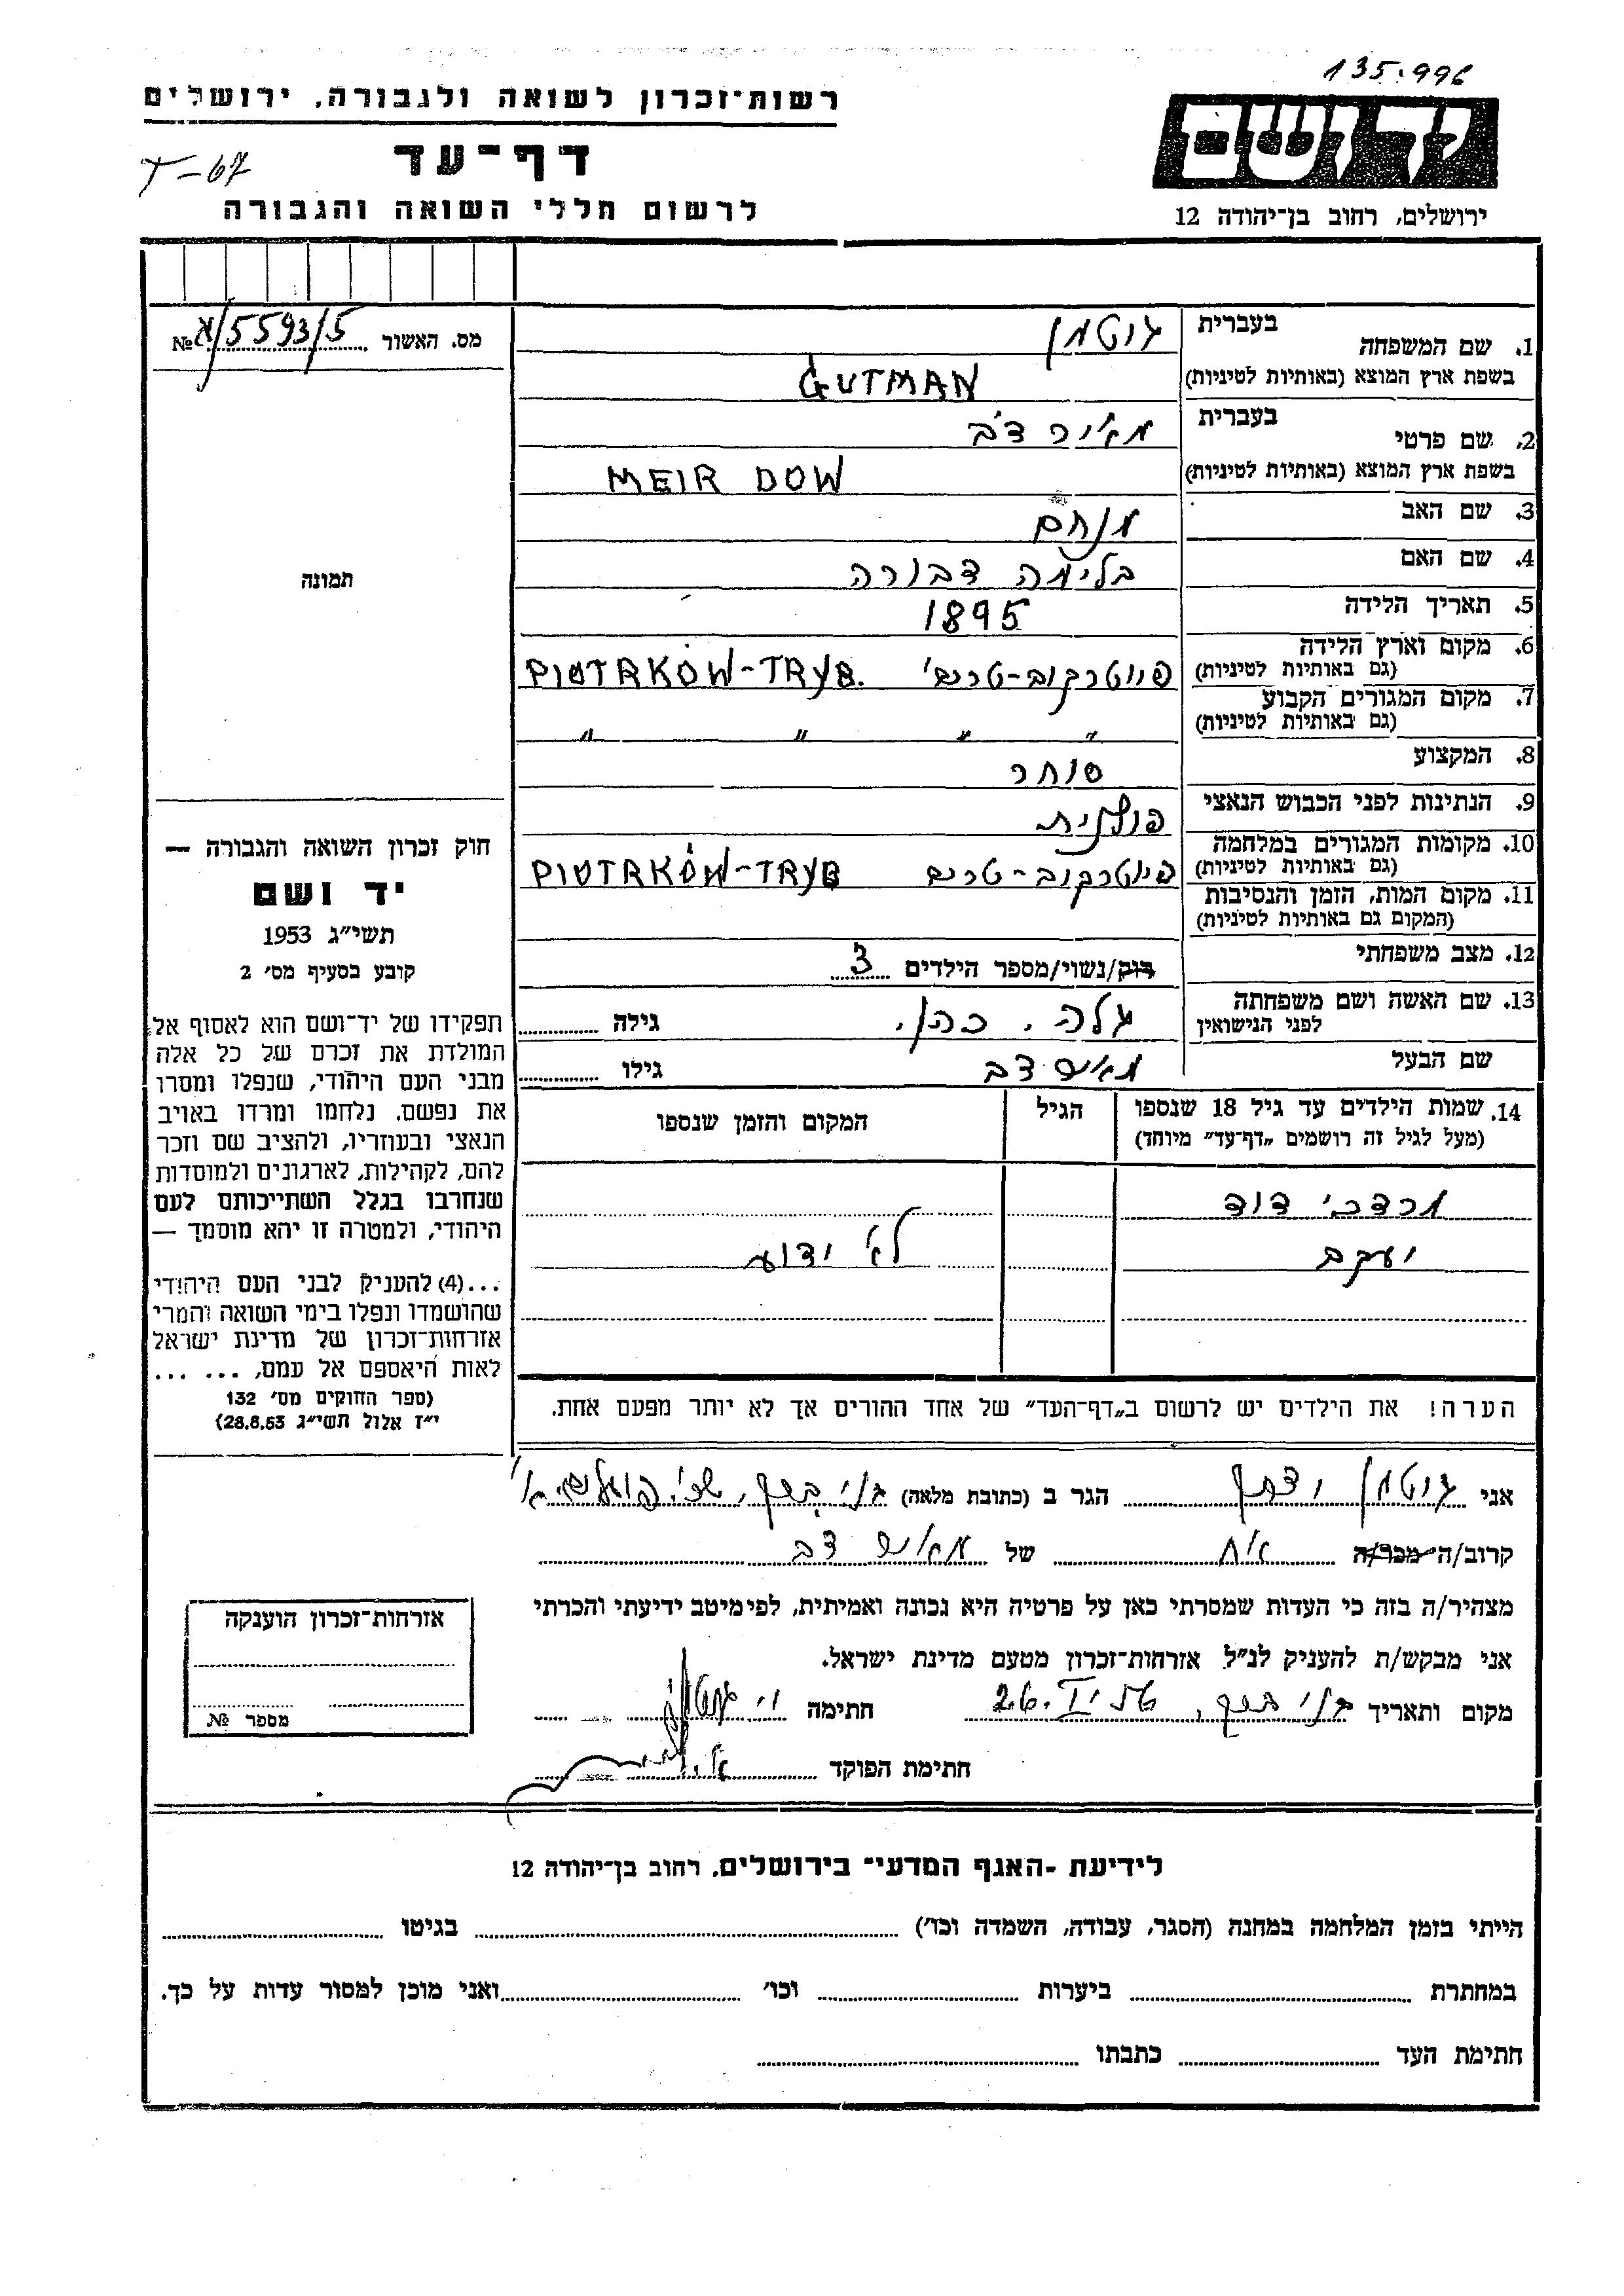 135.996
רשות־זכרון לשואה ולגבורה, ירושלים
יד ושם
T-67
דף־עד
לרשום חללי השואה והגבורה
ירושלים, רחוב בן־יהודה 12
מס. האשור א/5593/5 №
1. שם המשפחה בעברית גוטמן
בשפת ארץ המוצא (באותיות לטיניות) GUTMAN
2. שם פרטי בעברית מאיר דב
בשפת ארץ המוצא (באותיות לטיניות) MEIR DOW
3. שם האב מנחם
4. שם האם בלימה דבורה
5. תאריך הלידה 1895
6. מקום וארץ הלידה פיוטרקוב-טריב' PIOTRKÓW-TRYB.
(גם באותיות לטיניות)
7. מקום המגורים הקבוע
(גם באותיות לטיניות) " " " "
8. המקצוע סוחר
9. הנתינות לפני הכבוש הנאצי פולנית
10. מקומות המגורים במלחמה
(גם באותיות לטיניות) פיוטרקוב-טריב PIOTRKÓW-TRYB
11. מקום המות, הזמן והנסיבות
(המקום גם באותיות לטיניות)
12. מצב משפחתי רוק/נשוי/מספר הילדים 3
13. שם האשה ושם משפחתה
לפני הנישואין גלה, כהן. גילה
שם הבעל מאיר דב גילו
תמונה
חוק זכרון השואה והגבורה —
יד ושם
תשי״ג 1953
קובע בסעיף מס׳ 2
תפקידו של יד־ושם הוא לאסוף אל
המולדת את זכרם של כל אלה
מבני העם היהודי, שנפלו ומסרו
את נפשם, נלחמו ומרדו באויב
הנאצי ובעוזריו, ולהציב שם וזכר
להם, לקהילות, לארגונים ולמוסדות
שנחרבו בגלל השתייכותם לעם
היהודי, ולמטרה זו יהא מוסמך —
...(4) להעניק לבני העם היהודי
שהושמדו ונפלו בימי השואה והמרי
אזרחות־זכרון של מדינת ישראל
לאות היאספם אל עמם, ... ...
(ספר החוקים מס׳ 132
י״ז אלול תשי״ג 28.8.53)
14. שמות הילדים עד גיל 18 שנספו הגיל המקום והזמן שנספו
(מעל לגיל זה רושמים „דף־עד״ מיוחד)
מרדכי דוד
יעקב לא ידוע
הערה! את הילדים יש לרשום ב„דף־העד״ של אחד ההורים אך לא יותר מפעם אחת.
אני גוטמן יוסף הגר ב (כתובת מלאה) בני ברק, שכ'
קרוב/ה מכר/ה אח של מאיר דב
מצהיר/ה בזה כי העדות שמסרתי כאן על פרטיה היא נכונה ואמיתית, לפי מיטב ידיעתי והכרתי
אני מבקש/ת להעניק לנ״ל אזרחות־זכרון מטעם מדינת ישראל.
מקום ותאריך בני ברק, 26.I. חתימה י' גוטמן
חתימת הפוקד
אזרחות־זכרון הוענקה
מספר №
לידיעת -האגף המדעי־ בירושלים, רחוב בן־יהודה 12
הייתי בזמן המלחמה במחנה (הסגר, עבודה, השמדה וכו׳) בגיטו
במחתרת ביערות וכו׳ ואני מוכן למסור עדות על כך.
חתימת העד כתבתו